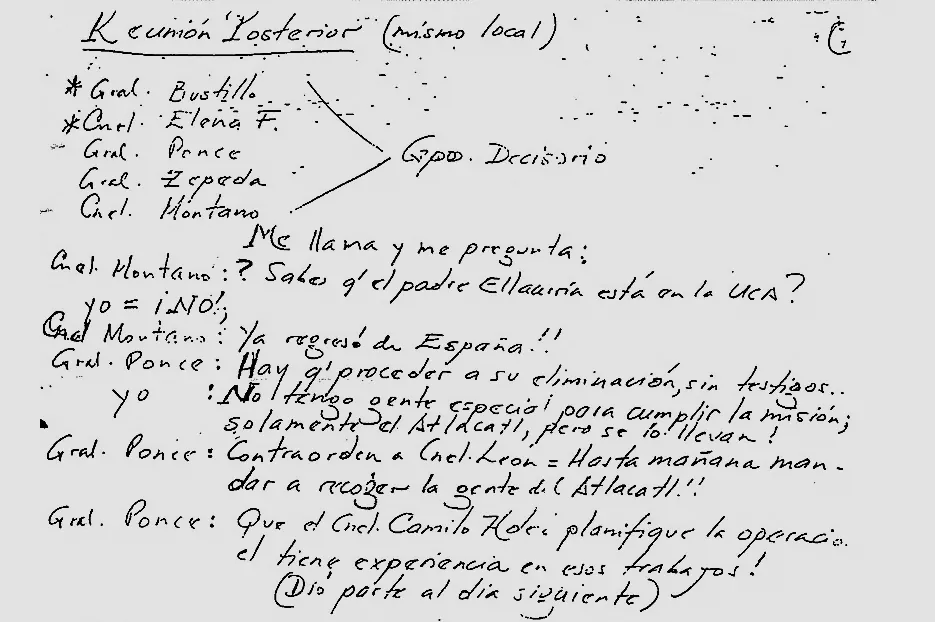 Reunión Posterior (mismo local)
* Gral. Bustillo
* Cnel. Elena F.
Gral. Ponce
Gpo. Decisorio
Gral. Zepeda
Cnel. Montano
Me llama y me pregunta:
Cnel. Montano: ? Sabes q' el padre Ellacuría está en la UCA?
yo = ¡NO!;
Cnel Montano: Ya regresó de España!!
Gral. Ponce: Hay q' proceder a su eliminación, sin testigos..
yo : No tengo gente especial para cumplir la misión;
solamente el Atlacatl, pero se lo llevan!
Gral. Ponce: Contraorden a Cnel. Leon = Hasta mañana man-
dar a recoger la gente del Atlacatl!!
Gral. Ponce: Que el Cnel. Camilo Hdez planifique la operació.
el tiene experiencia en esos trabajos!
(Dió parte al dia siguiente)